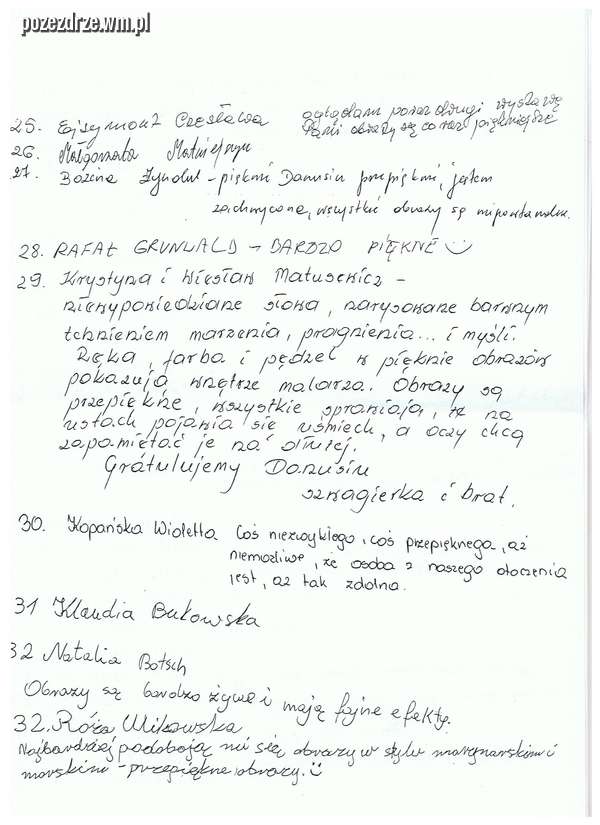 pozezdrze.wm.pl
25. Ejsymont Czesława oglądam poraz drugi wystawę
Pani obrazy są coraz piękniejsze
26. Małgorzata
27. Bożena Żyndul - piękni Danusiu przepiękni, jestem
zachwycona, wszystkie obrazy są
28. RAFAŁ GRUNWALD - BARDZO PIĘKNE
29. Krystyna i Wiesław Matusewicz -
niewypowiedziane słowa, narysowane barwnym
tchnieniem marzenia, pragnienia... i myśli.
Ręka, farba i pędzel w pięknie obrazów
pokazują wnętrze malarza. Obrazy są
przepiękne, wszystkie sprawiają, że na
ustach pojawia się uśmiech, a oczy chcą
zapamiętać je na dłużej.
Gratulujemy Danusiu
szwagierka i brat.
30. Kopańska Wioletta Coś niezwykłego, coś przepięknego, aż
niemożliwe, że osoba z naszego otoczenia
jest, aż tak zdolna.
31 Klaudia Bukowska
32 Natalia Botsch
Obrazy są bardzo żywe i mają fajne efekty.
32. Róża Milkowska
Najbardziej podobają mi się obrazy w stylu marynarskim i
morskim - przepiękne obrazy.